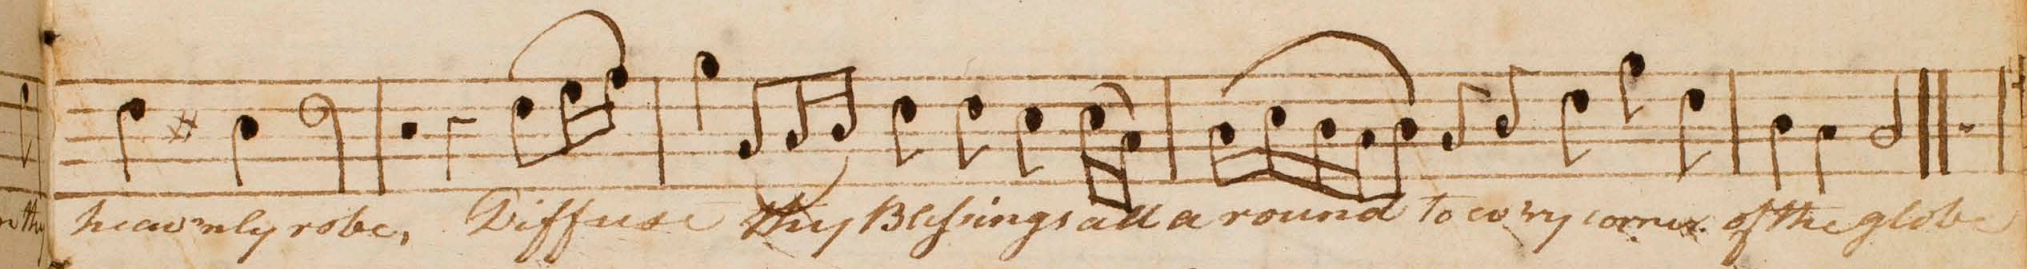 n thy heav'nly robe, Diffuse thy Blessings all a round to ev'ry corner of the globe